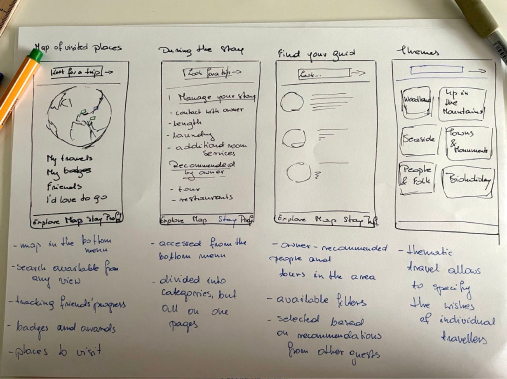 Map of visited places
Look for a trip
My travels
My badges
Friends
I'd love to go
Explore Map Stay Prof
- map in the bottom
menu
- search available from
any view
- tracking friends' progress
- badges and awards
- places to visit
During the stay
Look for a trip
Manage your stay
- contact with owner
- length
- laundry
- additional room
services
Recommended
by owner
- tour
- restaurants
Explore Map Stay Prof
- accessed from the
bottom menu
- divided into
categories, but
all on one
pages
Find your guid
Look...
Explore Map Stay Prof
- owner-recommended
people and
tours in the area
- available filters
- selected based
on recommendations
from other guests
Themes
Woodland
Up in
the
Mountains
Seaside
Towns
&
Monuments
People
& Folk
Biodiversity
- thematic
travel allows
to specify
the wishes
of individual
travellers